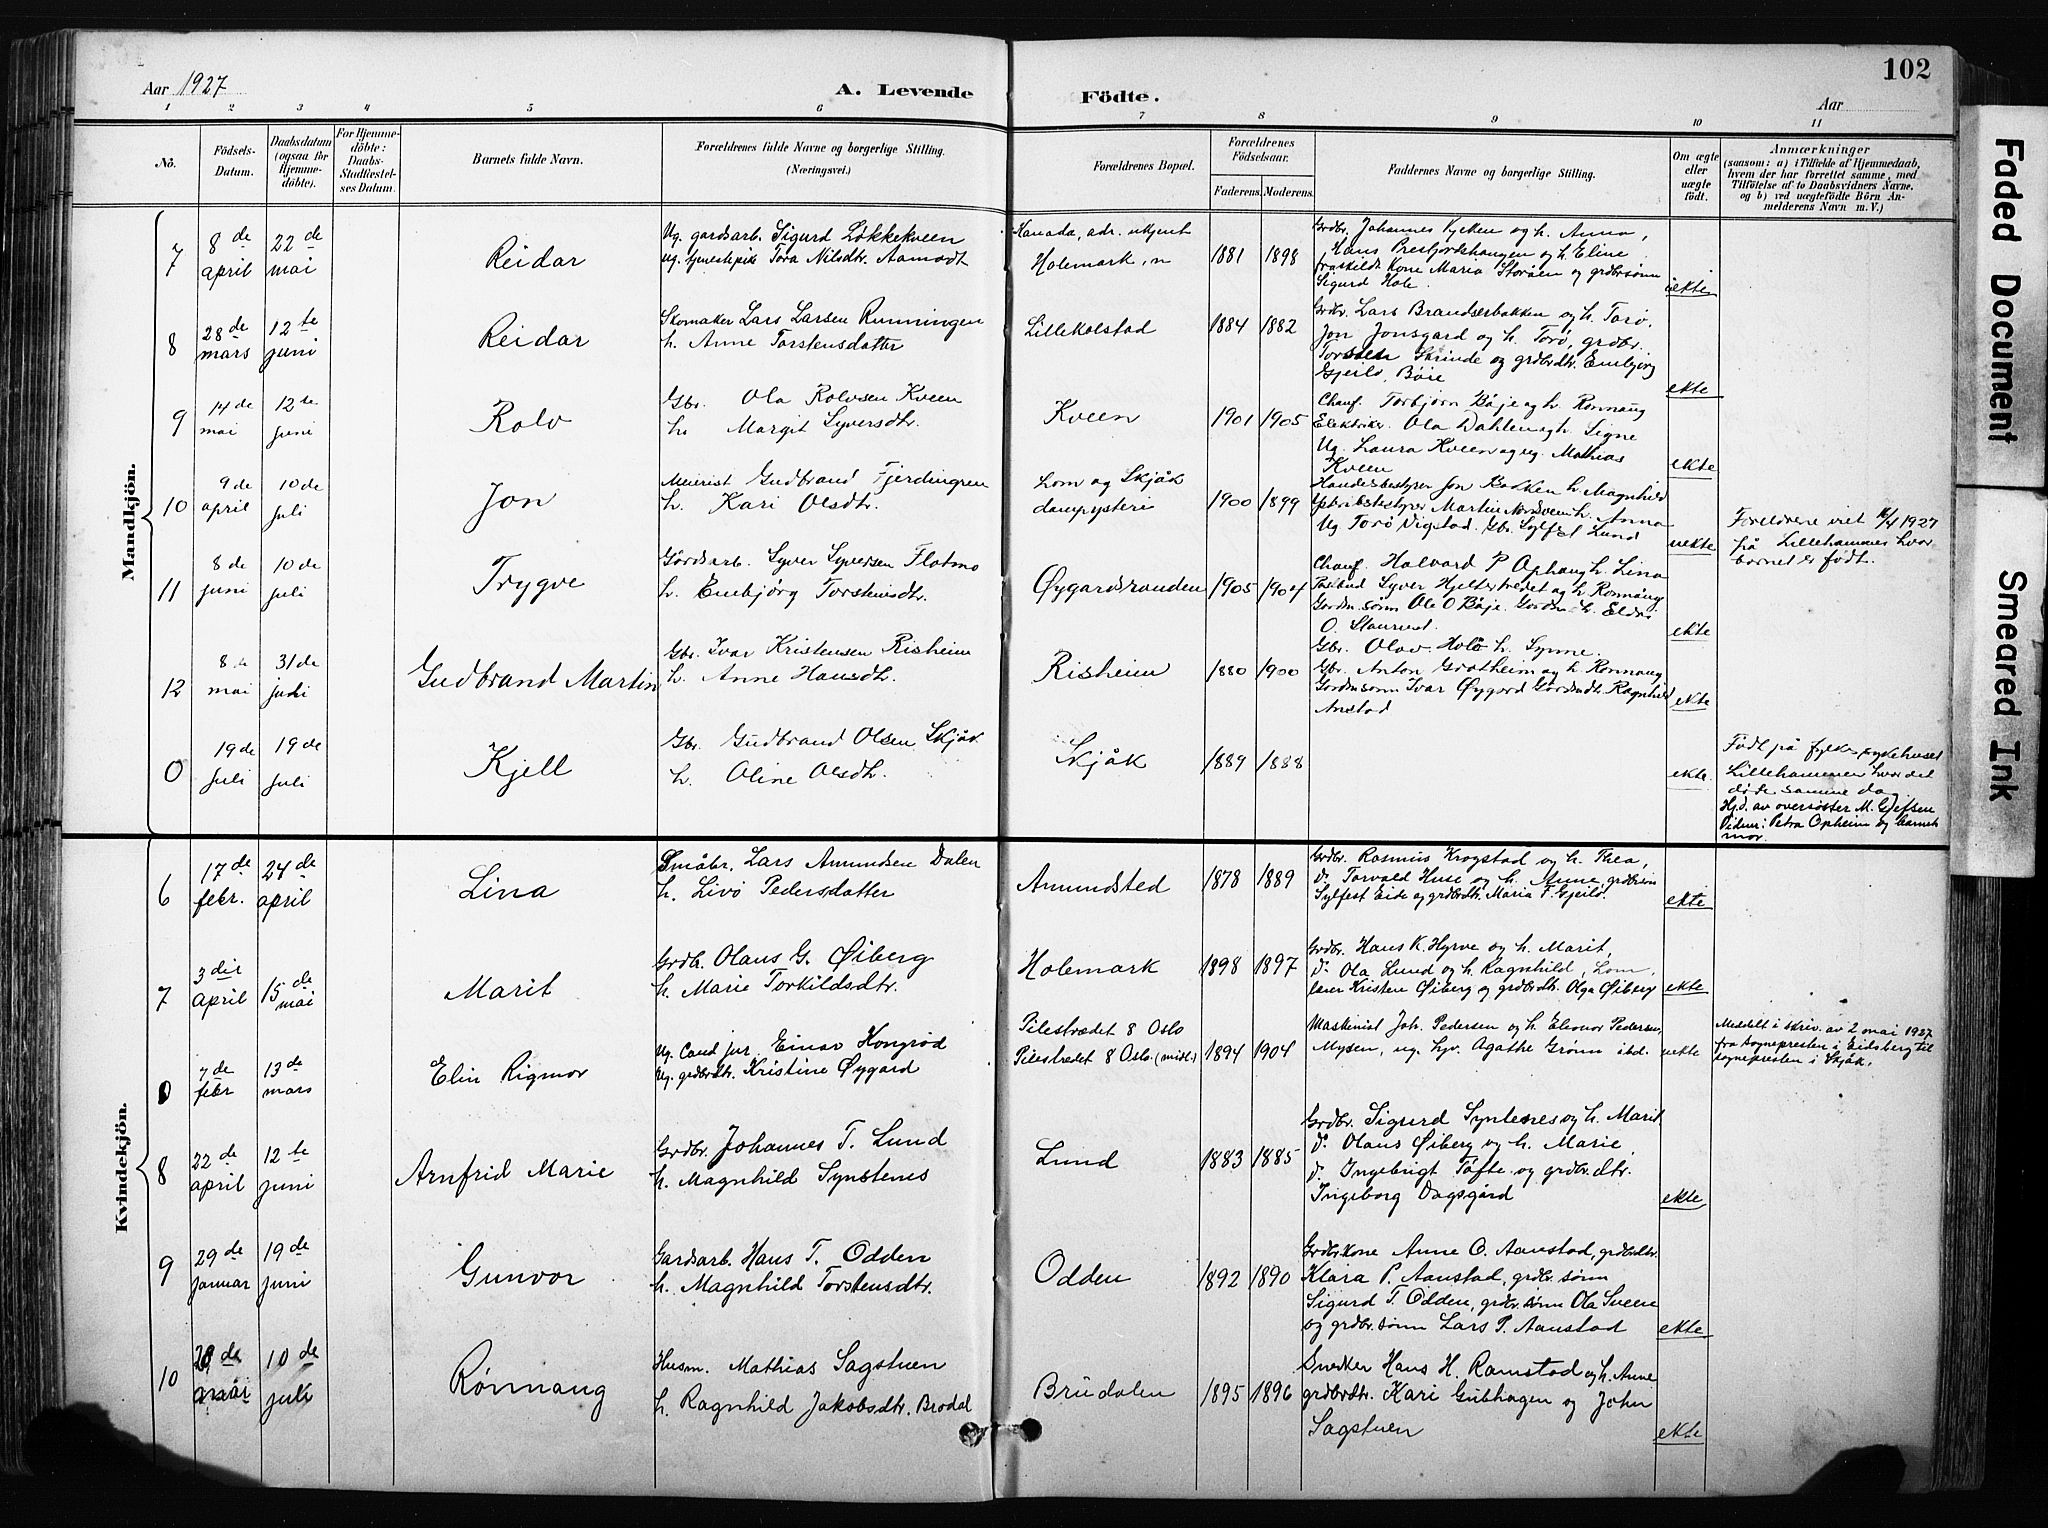 102
Aar 1927
A. Levende
Födte.
Aar
1 2 3 4 5 6 7 8 9 10 11
Nö.
Födsels-
Datum.
Daabsdatum
(ogsaa för
Hjemme-
döbte).
For Hjemme-
döbte:
Daabs-
Stadfæstel-
ses Datum.
Barnets fulde Navn.
Forældrenes fulde Navne og borgerlige Stilling.
(Næringsvei.)
Forældrenes Bopæl.
Forældrenes
Födselsaar.
Faderens. Moderens.
Faddernes Navne og borgerlige Stilling.
Om ægte
eller
uægte
födt.
Anmærkninger
(saasom: a) i Tilfælde af Hjemmedaab,
hvem der har forrettet samme, med
Tilföielse af to Daabsvidners Navne.
og b) ved uægtefödte Börn An-
melderens Navn m. V.)
Mandkjön.
7
8 de
april
22 de
mai
Reidar
Ug. gardsarb. Sigurd Løkkekveen
ug. tjenestepike Tora Nilsdtr. Aamodt
Kanada, adr. ukjent
Holemark, n
1881 1898
Grdbr. Johannes Kycken og h. Anna,
Hans Bresfjordshaugen og h. Eline
fraskildt Kone Maria Storåen og grdbrsønn
Sigurd Hole.
uekte
8
28 de
mars
12 te
juni
Reidar
Skomaker Lars Larsen Runningen
h. Anne Torstensdatter
Lillekolstad
1884 1882
Grdbr. Lars Brandserbakken og h. Torø,
Jon Jonsgard og h. Torø, grdbr.
Torsten Skrinde og grdbrdtr. Embjørg
Gjeilo, Böie
ekte
9
14 de
mai
12 te
juni
Rolv
Gbr. Ola Rolvsen Kveen
h. Margit Syversdtr.
Kveen
1901 1905
Chauf. Torbjørn Bøje og h. Rønnaug
Elektriker Ola Dahlen og h. Signe
Ug. Laura Kveen og ug. Mathias
Kveen
ekte
10
9 de
april
10 de
juli
Jon
Meierist Gudbrand Fjerdingren
h. Kari Olsdtr.
Lom og Skjåk
dampysteri
1900 1899
Handelsbestyrer Jon Bakken h. Magnhild
Ysteribestyrer Martin Nordveen h. Anna
Ug Torø Vigstad. Gbr. Sylfest Lund
uekte
Foreldrene viet 16/4 1927
på Lillehammer hvor
barnet er født.
11
8 de
juni
10 de
juli
Trygve
Gårdsarb. Syver Syversen Flatmo
h. Embjørg Torsteinsdtr.
Øygardsranden
1905 1904
Chauf. Halvard P Ophaug h. Lina
Postbud Syver Hjeltestredet og h. Rønnaug
Gardm. sønn Ole O Bøje. Gardm. h. Eldri
O. Staurust.
ekte
12
8 de
mai
31 de
juli
Gudbrand Martin
Gbr. Ivar Kristensen Risheim
h. Anne Hansdtr.
Risheim
1880 1900
Gbr. Olav Holø h. Synne.
Gbr. Anton Grotheim og h. Rønnaug
Gardmsønn Ivar Øygard Gårdmdtr. Ragnhild
Anstad
ekte
0
19 de
juli
19 de
juli
Kjell
Gbr. Gudbrand Olsen Skjåk
h. Oline Olsdtr.
Skjåk
1889 1888
ekte.
Født på fylkessykehuset
Lillehammer hvor det
døde samme dag.
Hjd. av oversøster M. Gjefsen
Vidner: Petra Opheim og barnets
mor
Kvindekjön.
6
17 de
febr.
24 de
april
Lina
Småbr. Lars Amundsen Dalen
h. Livø Pedersdatter
Amundsted
1878 1889
Grdbr. Rasmus Krogstad og h. Thea,
d. Torvald Huse og h. Anne, grdbrsønn
Sylfest Eide og grdbrdtr. Maria F. Gjeilo.
ekte
7
3 die
april
15 de
mai
Marit
Grdb. Olaus G. Øiberg
h. Marie Torkildsdtr.
Holemark
1898 1897
Grdbr. Hans K. Hyrve og h. Marit,
d. Ola Lund og h. Ragnhild, Lom,
lærer Kristen Øiberg og grdbrdtr. Olga Øiberg
ekte
0
7 de
febr
13 de
mars
Elin Rigmor
Ug. Cand jur. Einar Hongrød
Ug. grdbrdtr. Kristine Øygard
Pilestrædet 8 Oslo
Pilestredet 8 Oslo. (midl.)
1894 1904
Maskinist Joh. Pedersen og h. Eleonor Pedersen,
Mysen, ug. hv. Agathe Grønn ibd.
uekte
Meddelt i skriv. av 2 mai 1927
fra sognepresten i Eidsberg til
sognepresten i Skjåk.
8
22 de
april
12 te
juni
Arnfrid Marie
Grdbr. Johannes T. Lund
h. Magnhild Synstenes
Lund
1883 1885
Grdbr. Sigurd Syntenes og h. Marit
d. Olaus Øiberg og h. Marie,
d. Ingebrigt Tofte og grdbr. dtr.
Ingeborg Dagsgård
ekte
9
29 de
januar
19 de
juni
Gunvor
Gardsarb. Hans T. Odden
h. Magnhild Torstensdtr.
Odden
1892 1890
Grdbrkone Anne O. Aanstad, grdbrdtr.
Klara P. Aanstad, grdbr. sønn
Sigurd T. Odden, grdbr. sønn Ola Sveen
og grdbr. sønn Lars P. Aanstad
ekte
10
28 de
10 de
juli
Rønnaug
Husm. Mathias Sagstuen
h. Ragnhild Jakobsdtr. Brødal
Brudalen
1895 1896
Snekker Hans H. Ramstad og h. Anne
grdbrdtr. Kari Gubhagen og John
Sagstuen
ekte
Faded Document
Smeared Ink